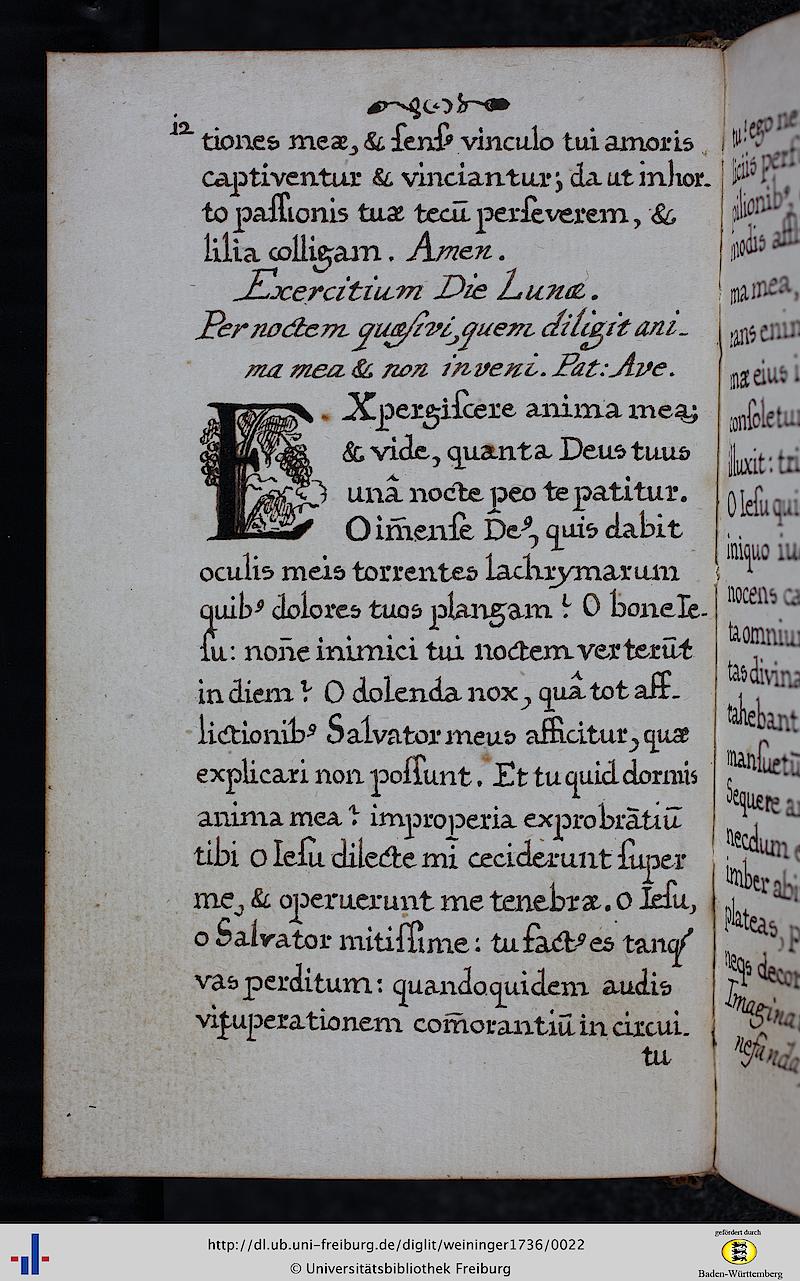 12
tiones meæ, & ſenſꝰ vinculo tui amoris
captiventur & vinciantur; da ut in hor-
to paſſionis tuæ tecũ perſeverem, &
lilia colligam. Amen.
Exercitium Die Lunæ.
Per noctem quæſivi, quem diligit ani-
ma mea & non inveni. Pat: Ave.
EXpergiſcere anima mea;
& vide, quanta Deus tuus
unâ nocte peo te patitur.
O im̃enſe Deꝰ, quis dabit
oculis meis torrentes lachrymarum
quibꝰ dolores tuos plangam? O bone Ie-
ſu: non̄e inimici tui noctem verterũt
in diem? O dolenda nox, quâ tot aff-
lictionibꝰ Salvator meus afficitur, quæ
explicari non poſſunt. Et tu quid dormis
anima mea? improperia exprobrātiũ
tibi o Ieſu dilecte mi ceciderunt ſuper
me, & operuerunt me tenebræ. o Ieſu,
o Salvator mitiſſime: tu factꝰ es tanqꝫ
vas perditum: quandoquidem audis
vituperationem com̃orantiũ in circui-
tu
tu! ego ne
liciis perf
pilionibꝰ,
modis affl
ma mea,
rans enim
mæ eius i
conſoletur
illuxit: tri
O Ieſu qui
iniquo iu
nocens ca
ta omniu
tas divina
tahebant
manſuetũ
Sequere a
necdum
imber abi
plateas, p
neqs decor
Imagina
nefunda
http://dl.ub.uni-freiburg.de/diglit/weininger1736/0022
© Universitätsbibliothek Freiburg
gefördert durch
Baden-Württemberg